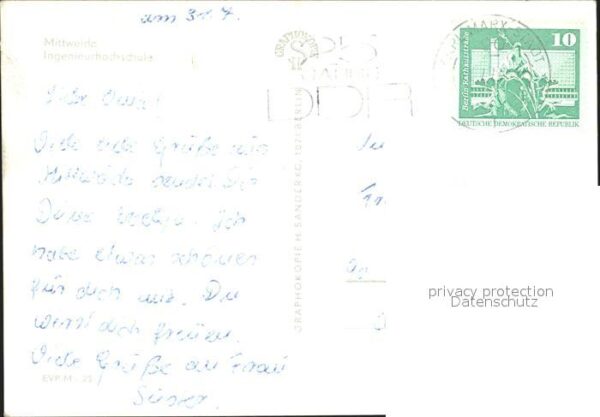 am 31.7.
Mittweida
Ingenieurhochschule
Liebe Oma!
Viele viele Grüße aus
Mittweida sendet Dir
Deine Evelyn. Ich
habe etwas schönes
für dich mit. Du
wirst dich freuen.
Viele Grüße an Frau
EVP M -,25
GRAPHOKOPIE H. SANDER KG, 1071 BERLIN
DDR
10
Berlin, Rathausstraße
DEUTSCHE DEMOKRATISCHE REPUBLIK
privacy protection
Datenschutz